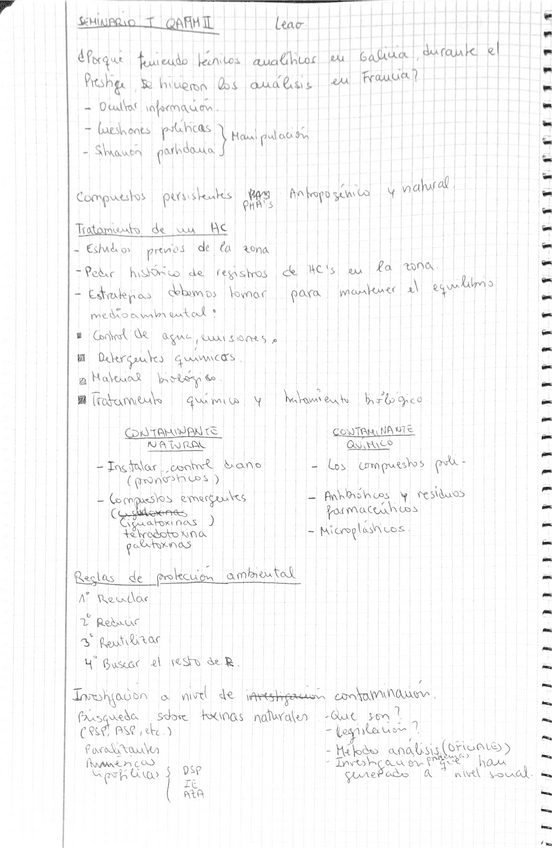 SEMINARIO I QAMM II Leao
¿Porqué teniendo técnicos analíticos en Galicia, durante el
Prestige, se hicieron los análisis en Francia?
- Ocultar información.
- Cuestiones políticas
- Situación partidaria } Manipulación
Compuestos persistentes PAHA's Antropogénico y natural.
Tratamiento de un HC
- Estudios previos de la zona
- Pedir histórico de registros de HC's en la zona
- Estrategias debemos tomar para mantener el equilibrio
medioambiental.
Control de agua, emisiones.
Detergentes químicos.
Material biológico.
Tratamiento químico y tratamiento biológico
CONTAMINANTE
NATURAL
- Instalar control diario
(pronósticos)
- Compuestos emergentes
(ciguatoxinas)
tetradotoxina
palitoxinas
CONTAMINANTE
QUÍMICO
- Los compuestos poli-
- Antibióticos y residuos
farmaceúticos
- Microplásticos.
Reglas de protección ambiental
1º Reciclar
2º Reducir
3º Reutilizar
4º Buscar el resto de R.
Investigación a nivel de investigación contaminación.
Búsqueda sobre toxinas naturales
(PSP, ASP, etc.)
Paralizantes
Amnésicas
lipofílicas { DSP
AZA
- Que son?
- Legislación?
- Método análisis (oficiales)
- Investigación que han
generado a nivel social.